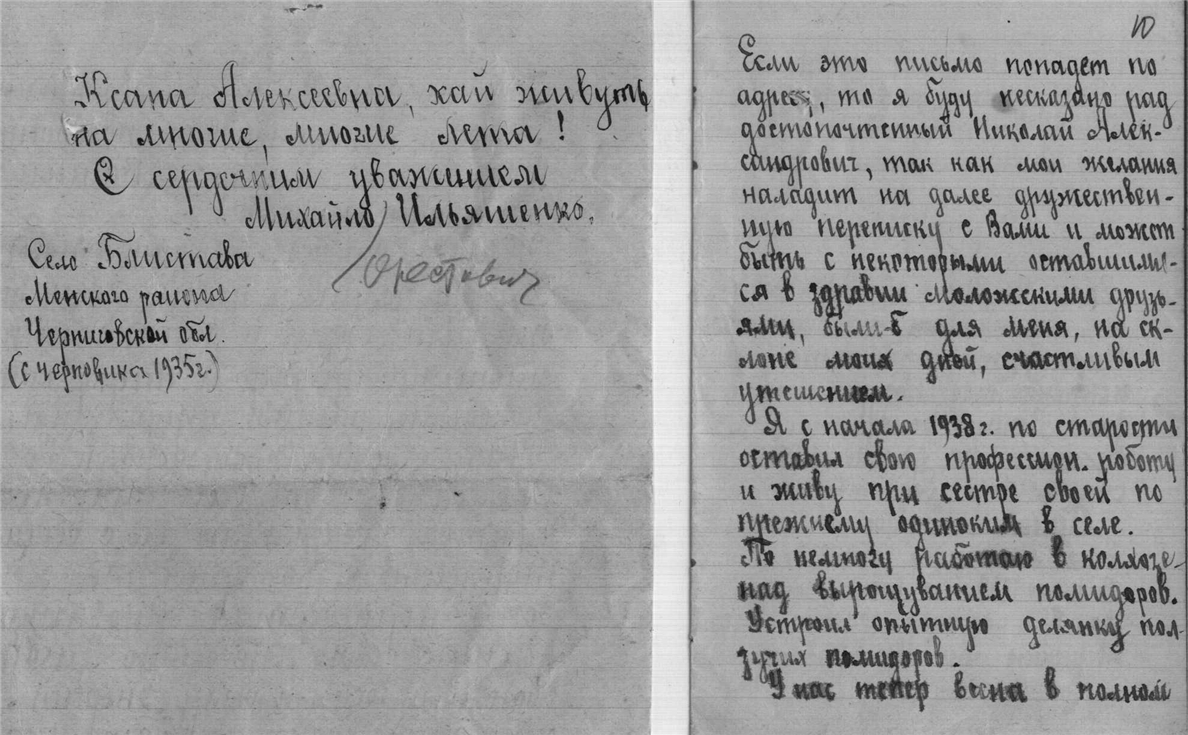 Ксана Алексеевна, хай живуть
на многие, многие лета!
С сердечним уважинием
Михайло Ильяшенко.
Орестович
Село Блистава
Менского района
Черниговской обл.
(с черновика 1935г.)
10
Если это письмо попадет по
адресу, то я буду несказано рад
достопочтенный Николай Алек-
сандрович, так как мои желания
наладит на далее дружествен-
ную переписку с Вами и может
быть с некоторыми оставшими-
ся в здравии моложскими друзь-
ями, были-б для меня, на ск-
лоне моих дной, счастливым
утешением.
Я с начала 1938г. по старости
оставил свою профессион. роботу
и живу при сестре своей по
прежнему одиноким в селе.
По немногу работаю в колхозе-
над вырощуванием помидоров.
Устроил опытную делянку пол-
зучих помидоров.
У нас тепер весна в полном